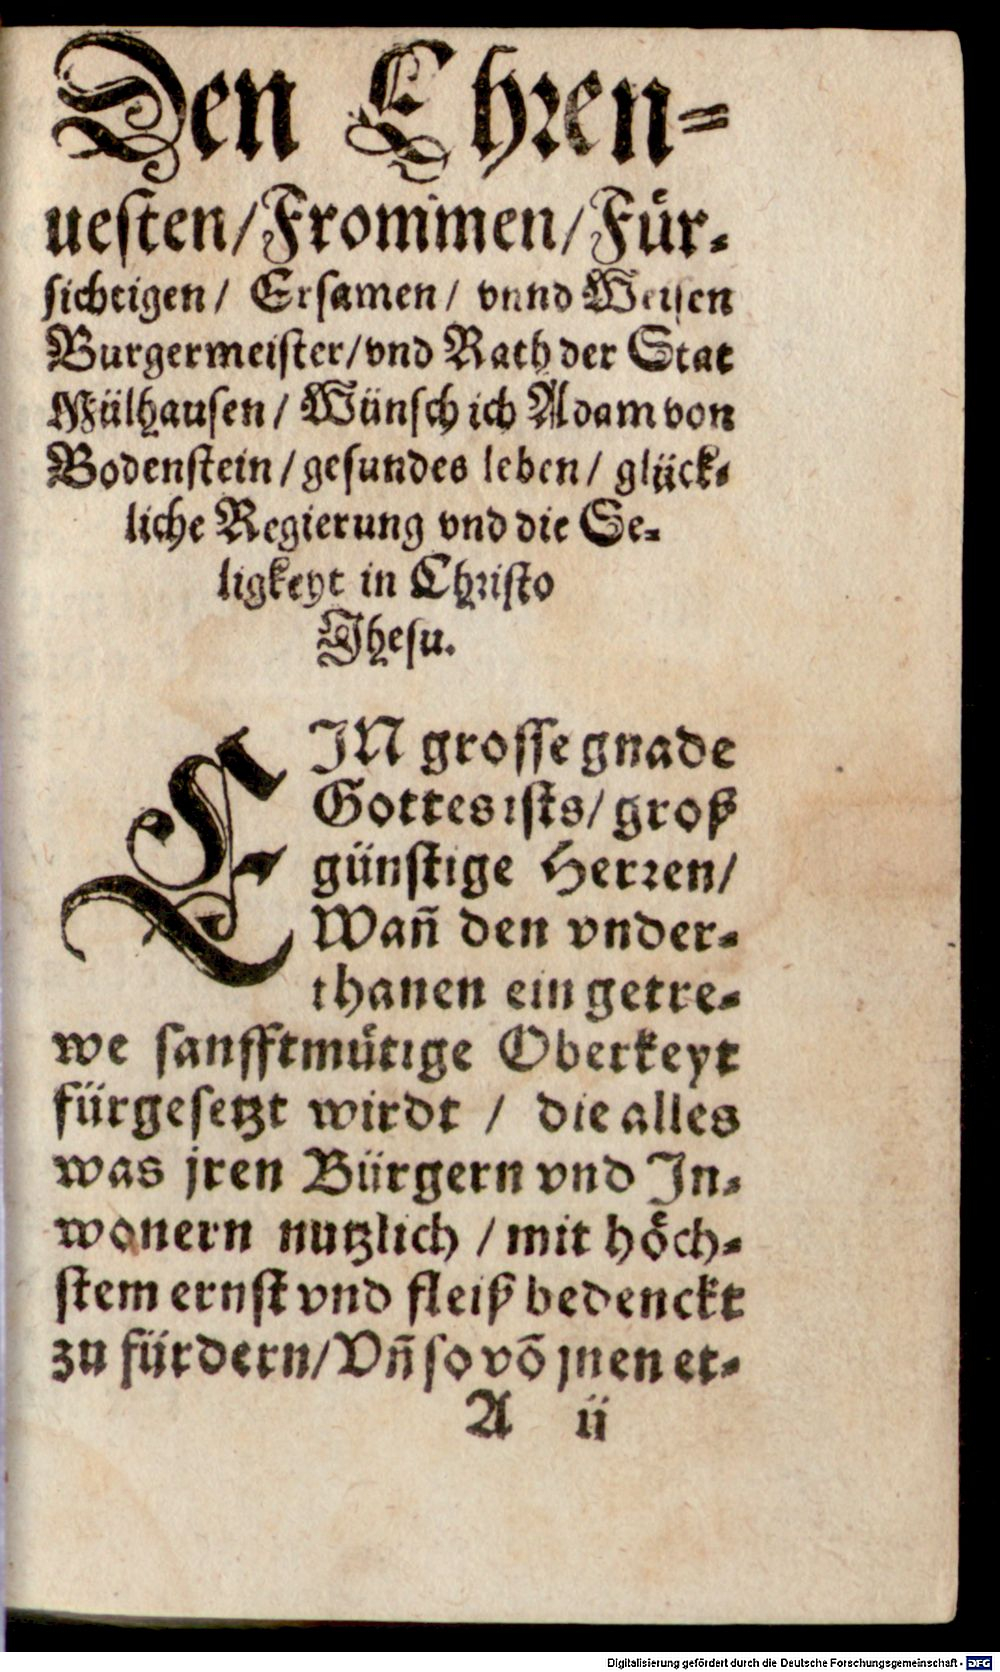 Den Ehren-
uesten/Frommen/Für-
sichtigen/ Ersamen/ vnnd Weisen
Burgermeister/vnd Rath der Stat
Mülhausen/ Wünsch ich Adam von
Bodenstein/gesundes leben/ glück-
liche Regierung vnd die Se-
ligkeyt in Christo
Jhesu.
EIN grosse gnade
Gottes ists/ groß
günstige Herren/
Wañ den vnder-
thanen ein getre-
we sanfftmütige Oberkeyt
fürgesetzt wirdt / die alles
was jren Bürgern vnd In-
wonern nutzlich /mit höch-
stem ernst vnd fleiß bedenckt
zu fürdern/Vñ so võ jnen er-
A ii
Digitalisierung gefördert durch die Deutsche Forschungsgemeinschaft - DFG